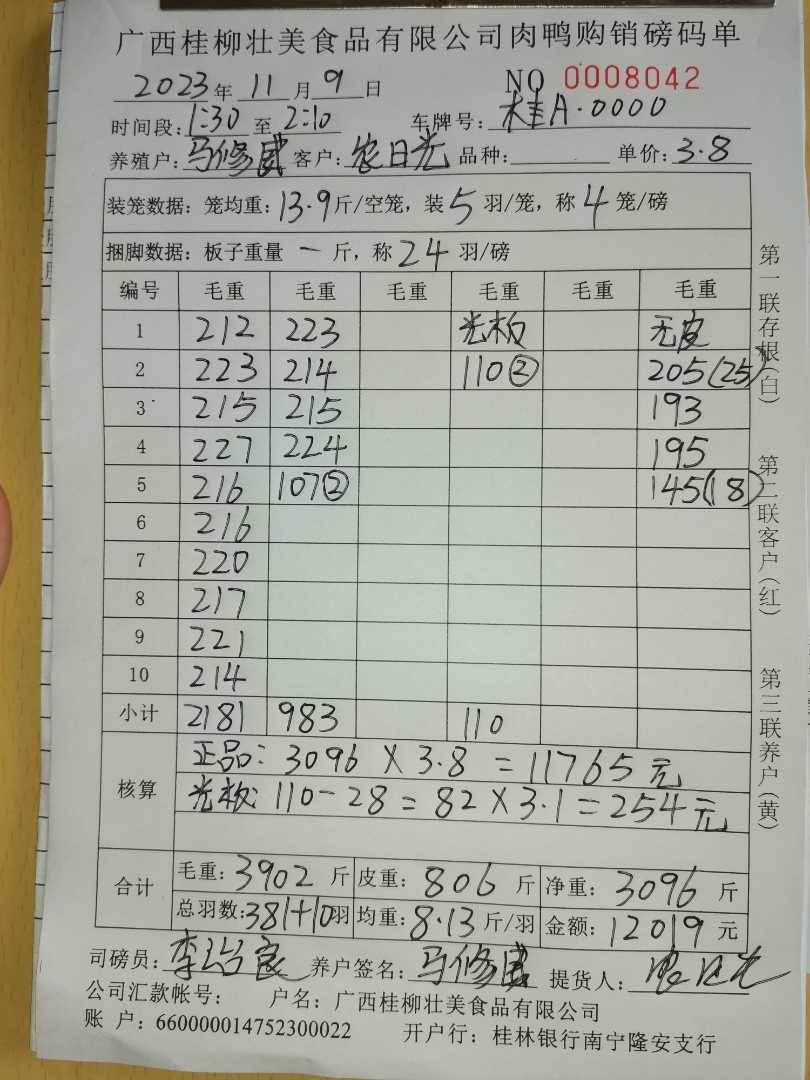 广西桂柳壮美食品有限公司肉鸭购销磅码单
2023年 11月 9日 NO 0008042
时间段:1:30至2:10 车牌号:桂A·0000
养殖户:马修威 客户:农日光 品种: 单价:3.8
装笼数据:笼均重:13.9斤/空笼,装5羽/笼,称4笼/磅
捆脚数据:板子重量 一 斤,称24羽/磅
编号 毛重 毛重 毛重 毛重 毛重 毛重
1 212 223 光板 无皮
2 223 214 110② 205(25)
3 215 215 193
4 227 224 195
5 216 107② 145(18)
6 216
7 220
8 217
9 221
10 214
小计 2181 983 110
核算
正品:3096×3.8=11765元
光板:110-28=82×3.1=254元
合计
毛重:3902斤 皮重:806斤 净重:3096斤
总羽数:381+10羽 均重:8.13斤/羽 金额:12019元
司磅员:李治良 养户签名:马修威 提货人:农日光
公司汇款帐号: 户名:广西桂柳壮美食品有限公司
账 户:660000014752300022 开户行:桂林银行南宁隆安支行
第一联存根(白)
第二联客户(红)
第三联养户(黄)